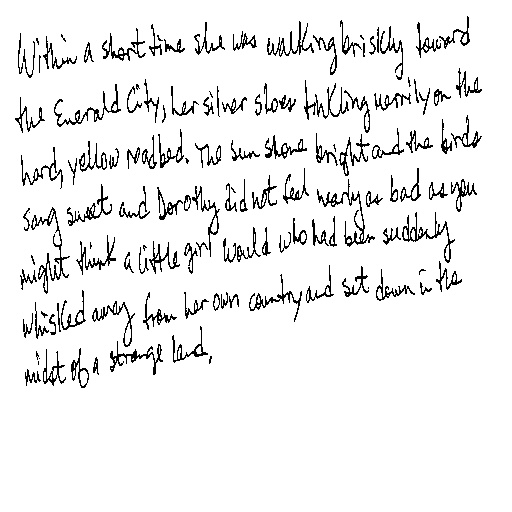 Within a short time she was walking briskly toward
the Emerald City, her silver shoes tinkling merrily on the
hard, yellow roadbed. The sun shone bright and the birds
sang sweet and Dorothy did not feel nearly as bad as you
might think a little girl would who had been suddenly
whisked away from her own country and set down in the
midst of a strange land.